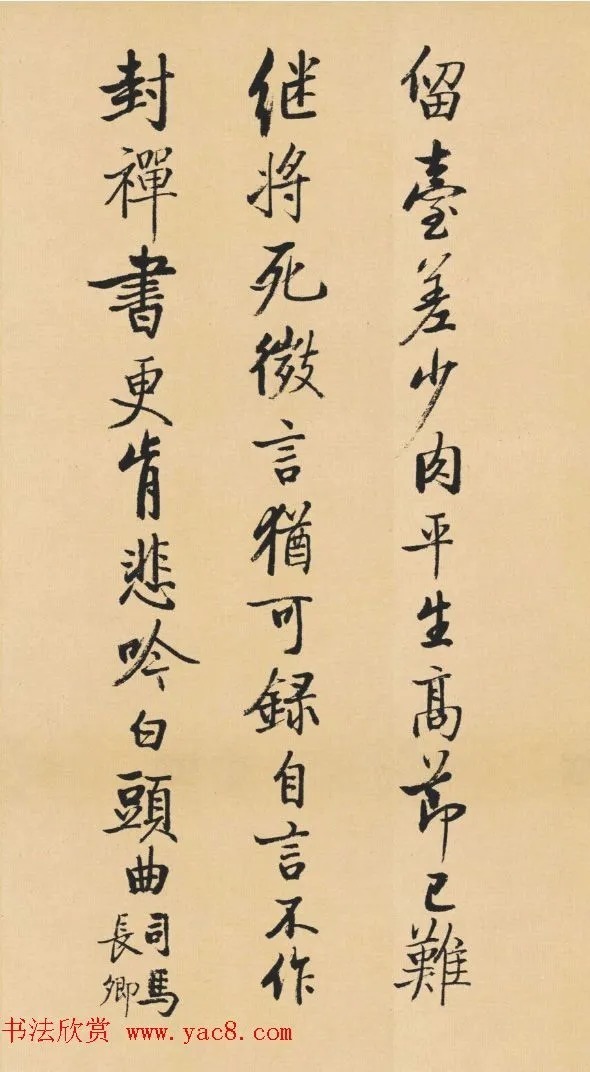 留臺差少肉平生高節已難
继将死微言猶可録自言不作
封禪書更肯悲吟白頭曲司馬
長卿
书法欣赏 www.yac8.com